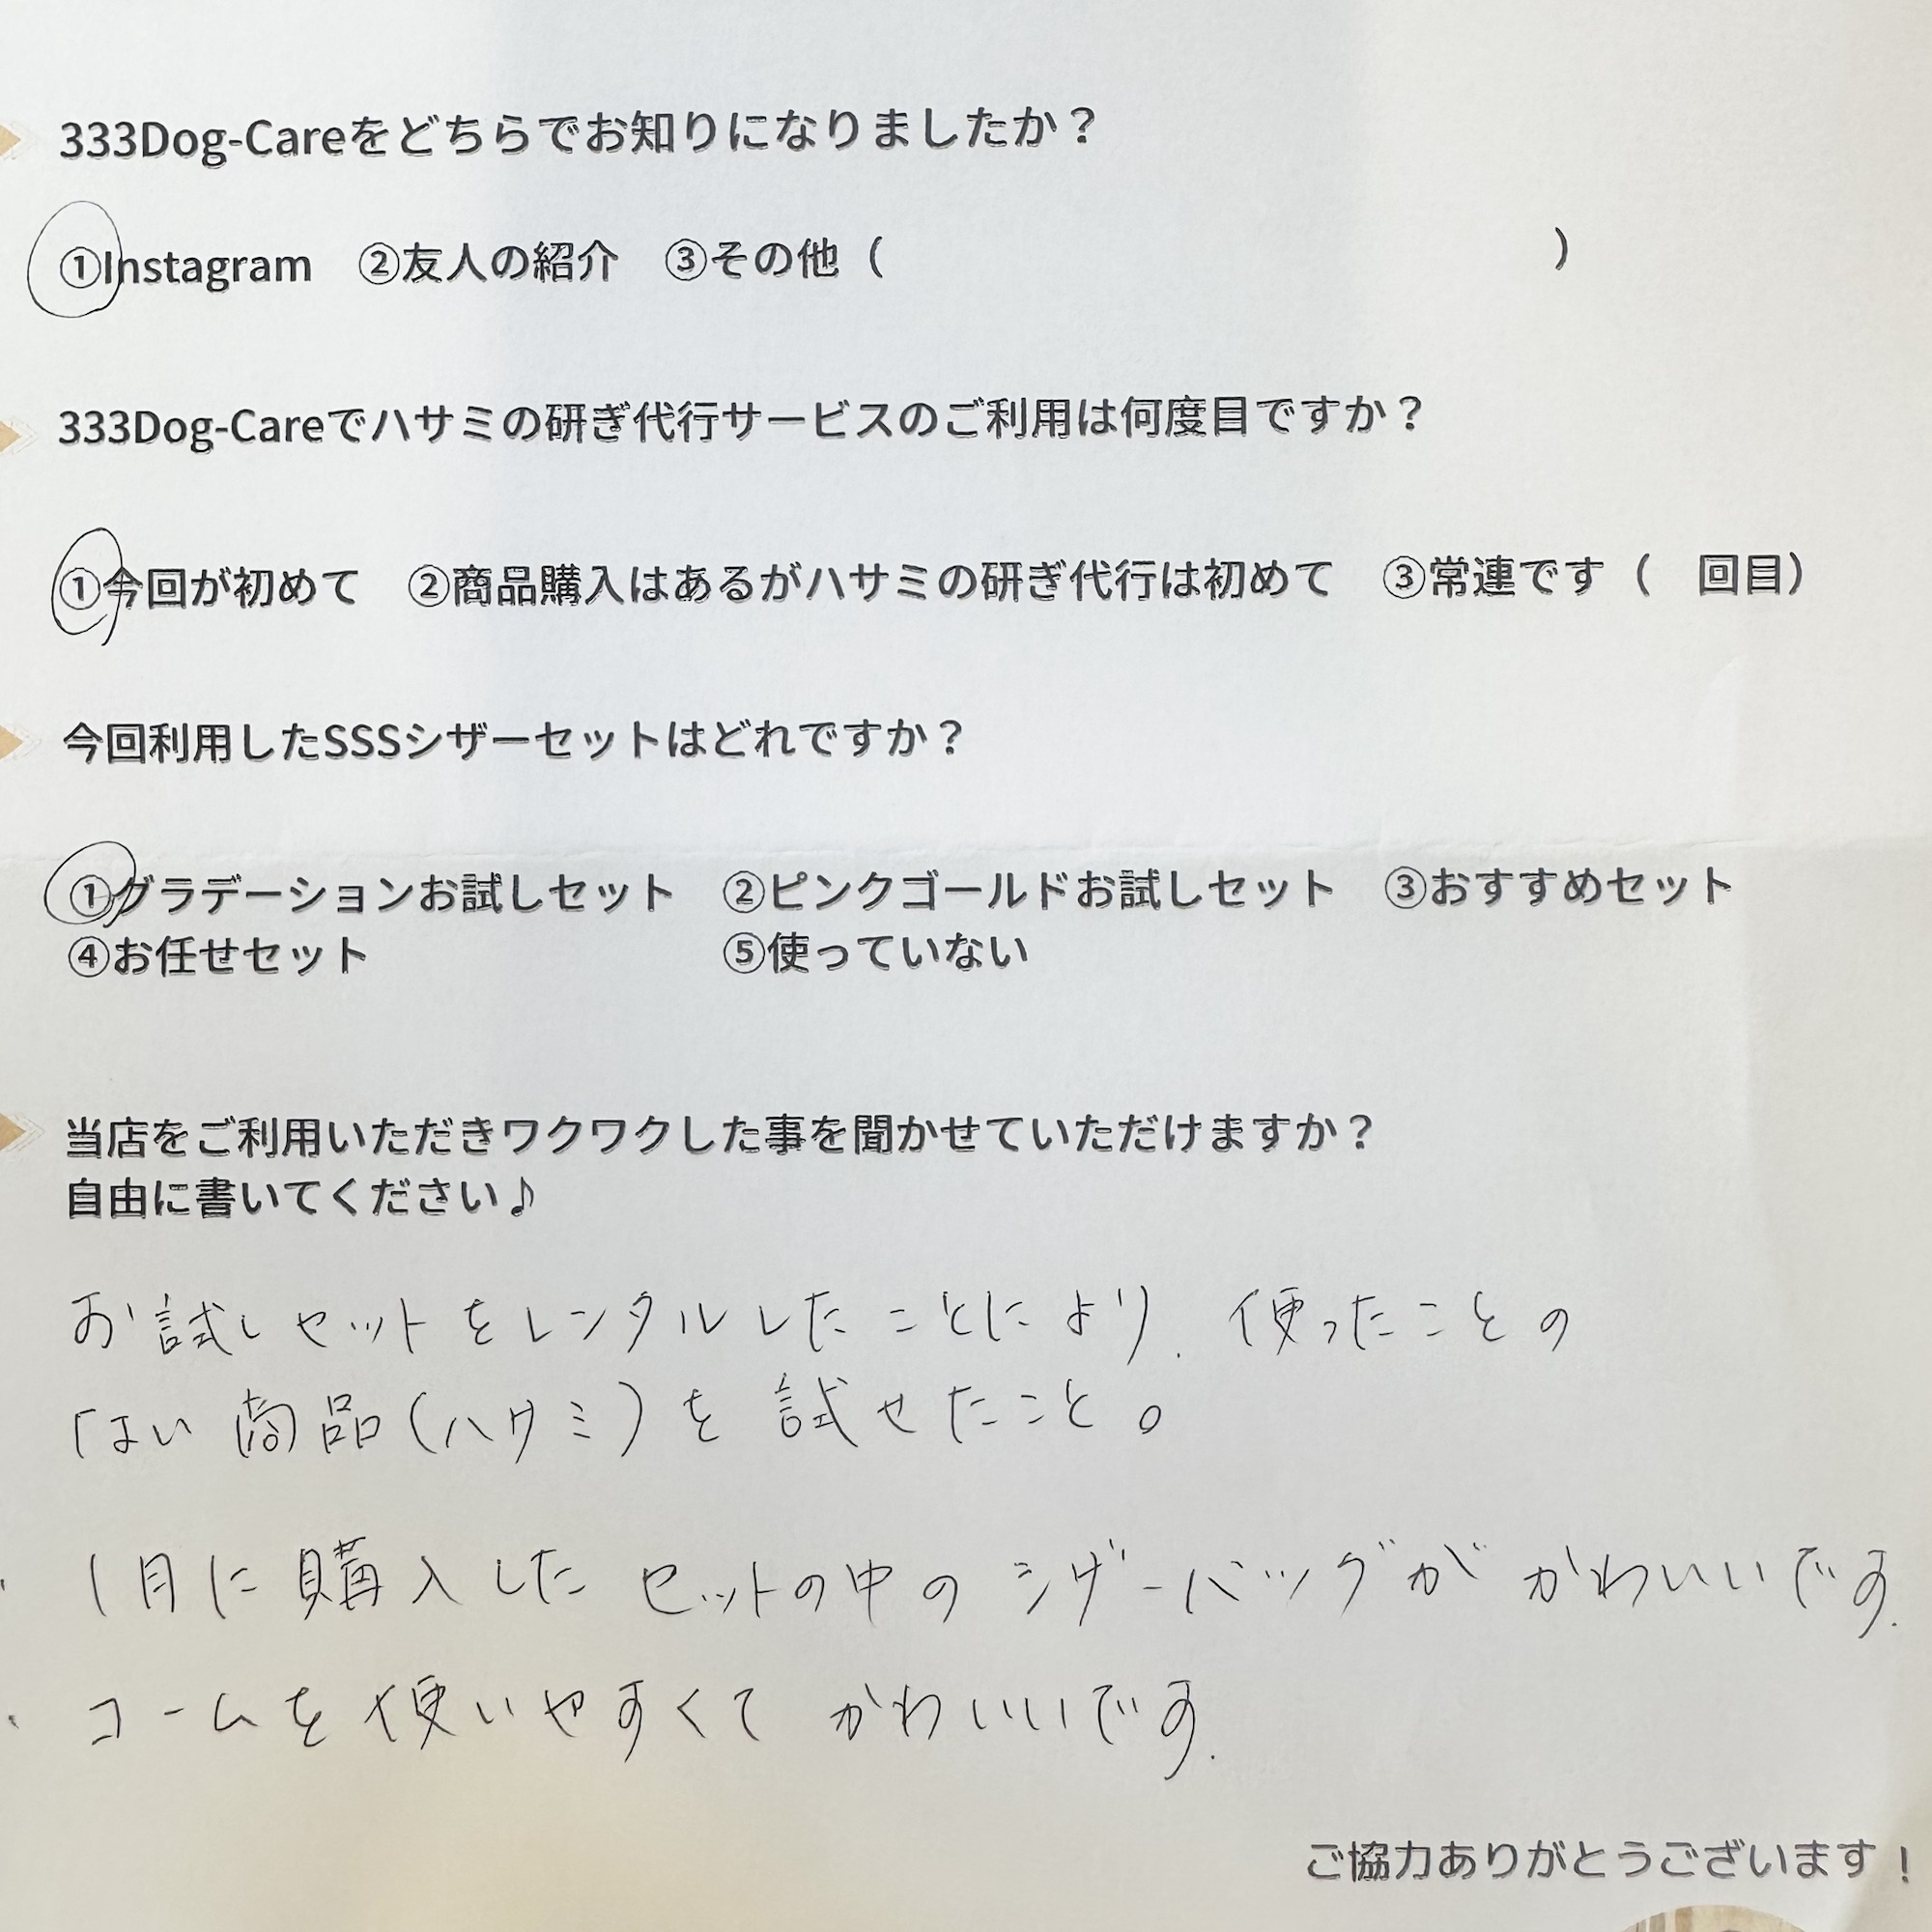 333Dog-Careをどちらでお知りになりましたか？
①Instagram　②友人の紹介　③その他（　　　　　　　　　　　　　　　）
333Dog-Careでハサミの研ぎ代行サービスのご利用は何度目ですか？
①今回が初めて　②商品購入はあるがハサミの研ぎ代行は初めて　③常連です（　回目）
今回利用したSSSシザーセットはどれですか？
①グラデーションお試しセット　②ピンクゴールドお試しセット　③おすすめセット
④お任せセット　⑤使っていない
当店をご利用いただきワクワクした事を聞かせていただけますか？
自由に書いてください♪
お試しセットをレンタルしたことにより、使ったことの
ない商品(ハサミ)を試せたこと。
・1月に購入したセットの中のシザーバッグがかわいいです。
・コームを使いやすくてかわいいです。
ご協力ありがとうございます！